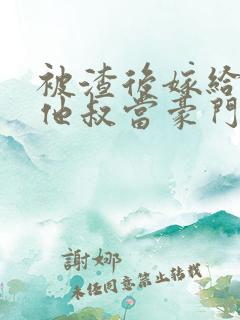 被渣後嫁給
他叔當豪門
謝娜
未经同意禁止转载